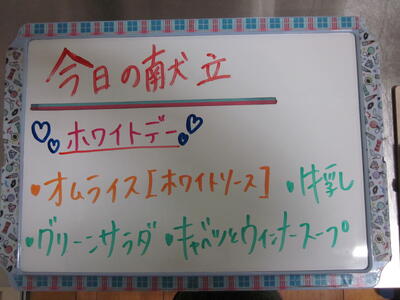 今日の献立
ホワイトデー
・オムライス[ホワイトソース] ・牛乳
・グリーンサラダ ・キャベツとウィンナースープ